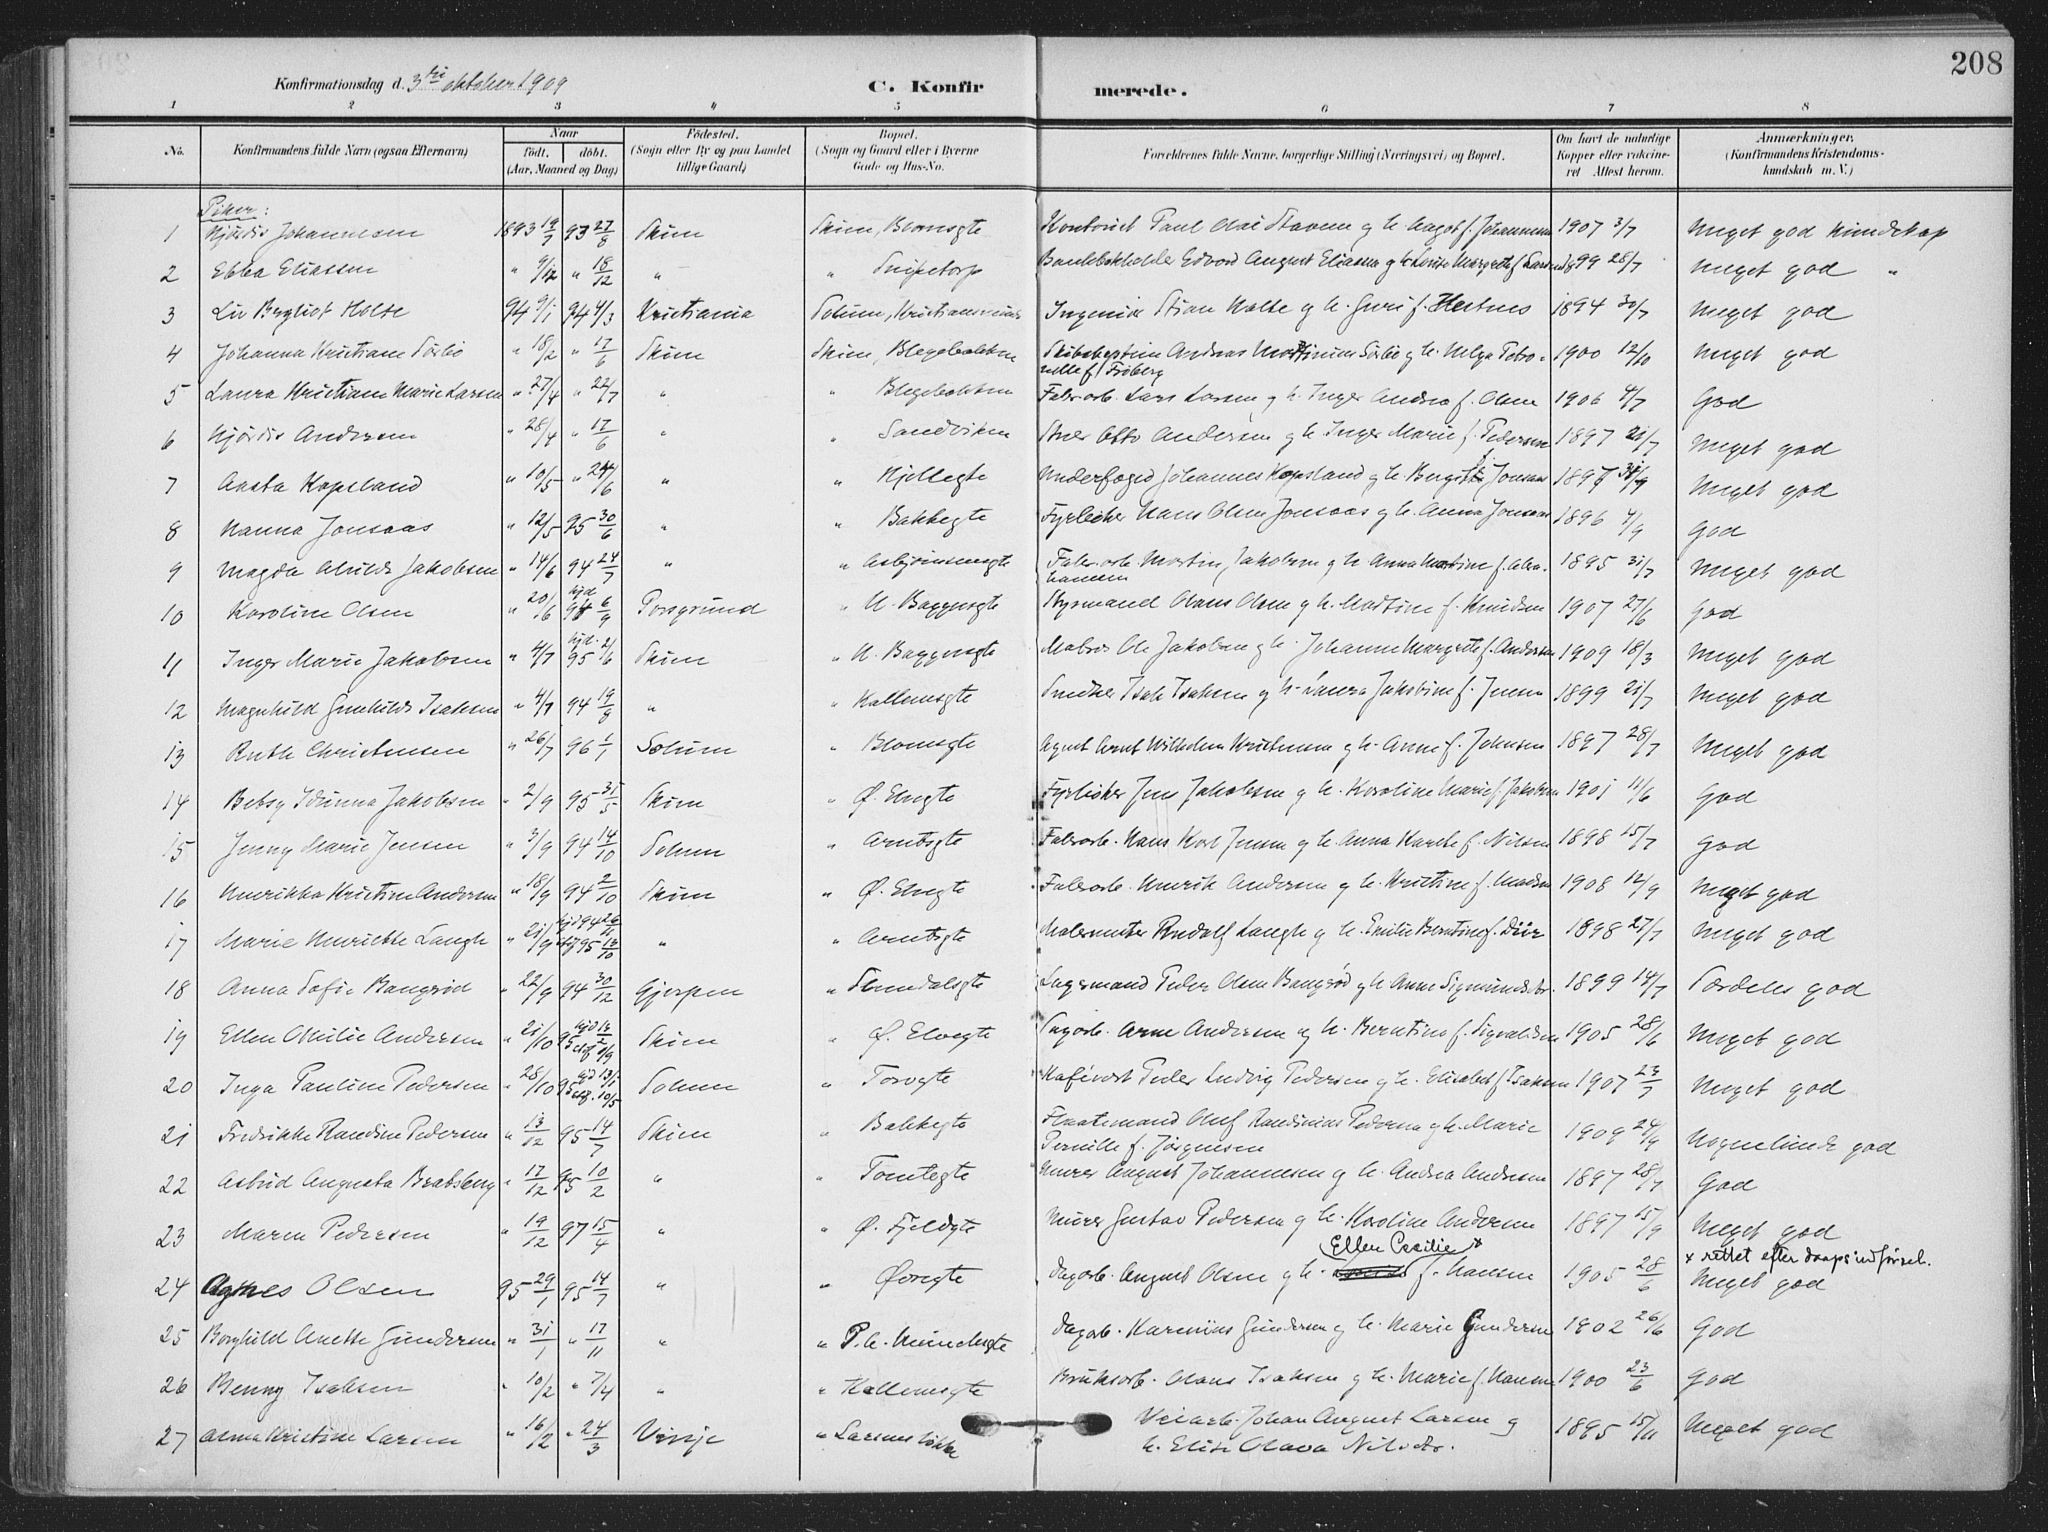 208
Konfirmationsdag d. 3die oktober 1909
C. Konfirmerede.
1 2 3 4 5 6 7 8
No. Konfirmandens fulde Navn (ogsaa Efternavn) Naar født. døbt. (Aar, Maaned og Dag) Fødested. (Sogn eller By og paa Landet tillige Gaard) Bopæl. (Sogn og Gaard eller i Byerne Gade og Hus-No. Forældrenes fulde Navne, borgerlige Stilling (Næringsvei) og Bopæl. Om havt de naturlige Kopper eller vakcineret Attest herom. Anmærkninger. (Konfirmandens Kristendomskundskab m. V.)
Piker:
1 Hjørdis Johannesen 1893 19/7 93 27/8 Skien Skien, Blomsgte Kontorist Paul Olai Stavem og h. Magot f. Johannesen 1907 3/7 Meget god kundskap
2 Ebba Eliassen " 9/12 " 18/12 " " Snipetorp Bankbokholder Edvard August Eliassen og h. Louise Margrethe f. Larsen 1899 28/7 Meget god "
3 Liv Bergliot Holte 94 9/1 94 4/3 Kristiania Solum, Kristiansminde Ingeniør Stian Holte og h. Guri f. Hertnes 1894 30/7 Meget god
4 Johanna Kristiane Sørbø " 18/2 " 17/6 Skien Skien, Blegebakken Skibskaptein Andreas Martinius Sørbø og h. Helga Petronille f. Frøberg 1900 12/10 Meget god
5 Laura Kristiane Marie Larsen " 27/4 " 22/7 " " Blegebakken Fabr.arb. Lars Larsen og h. Inger Andrea f. Olsen 1906 4/7 God
6 Hjørdis Andersen " 28/4 " 17/6 " " Sandviken Otto Andersen og h. Inger Marie f. Pedersen 1897 21/7 Meget god
7 Aasta Kopsland " 10/5 " 24/6 " " Hjellegte Underfoged Johannes Kopsland og h. Bergitte f. Jonsaas 1897 Meget god
8 Hanna Jonsaas " 12/5 95 30/6 " " Bakkegte Fyrbøter Hans Olsen Jonsaas og h. Anna Jonsaas 1896 4/9 God
9 Magda Alvilde Jakobsen " 14/6 94 24/7 " " Asbjørnsensgte Fabr.arb. Martin Jakobsen og h. Anna Martine f. Abrahamsen 1895 31/7 Meget god
10 Karoline Olsen " 20/6 hjd 94 6/9 Porsgrund " N. Baggensgte Styrmand Olaus Olsen og h. Martine f. Knudsen 1907 27/6 God
11 Inger Marie Jakobsen " 4/7 hjd. 95 21/6 Skien " N. Baggensgte Matros Ole Jakobsen og h. Johanne Margrethe f. Andersen 1909 18/3 Meget god
12 Magnhild Gunhilde Isaksen " 4/7 94 19/8 " " Kallemsgte Smeder Isak Isaksen og h. Laura Jakobine f. Jensen 1899 21/7 Meget god
13 Ruth Christensen " 26/7 96 1/7 Solum " Blomsgte Agent Arnt Wilhelm Kristensen og h. Anne f. Johnsen 1897 28/7 Meget god
14 Betsy Idunna Jakobsen " 2/9 95 31/5 Skien " Ø. Elvegte Fyrbøter Jens Jakobsen og h. Karoline Marie f. Jakobsen 1901 11/6 God
15 Jenny Marie Jensen " 3/9 94 14/10 Solum " Arntsgte Fabr.arb. Hans Karl Jensen og h. Anna Karete f. Nilsen 1898 15/7 God
16 Henrikka Kristine Andersen " 18/9 94 2/10 Skien " Ø. Elvegte Fabr.arb. Henrik Andersen og h. Kristine f. Madsen 1908 12/9 Meget god
17 Marie Henriette Langh " 21/9 hjd 94 95 13/10 " " Arntsgte Malermester Rudolf Langh og h. Emilie Berntine f. 1898 27/7 Meget god
18 Anna Sofie Bangrød " 22/9 94 30/12 Gjerpen " Stendalsgte Lagermand Peder Olsen Bangrød og h. Anne Sigmundsdtr. 1899 14/7 Særdeles god
19 Ellen Otilie Andersen " 21/10 hjd 95 Skien " Ø. Elvegte Sagarb. Arne Andersen og h. Berntine f. Sigvaldsen 1905 28/6 Meget god
20 Inga Pauline Pedersen " 28/10 hjd 13/1 95 stf. 10/5 Solum " Torvgte Kafévert Peder Ludvig Pedersen og h. Elisabet f. Isaksen 1907 23/7 Meget god
21 Fredrikke Randine Pedersen " 13/12 95 14/7 Skien " Bakkegte Flaatemand Oluf Randinius Pedersen og h. Marie Pernille f. Jørgensen 1909 24/9 Nogenlunde god
22 Astrid Augusta Bratsberg " 17/12 95 10/2 " " Tomtegte Murer August Johannesen og h. Andrea Andersen 1897 28/7 God
23 Maren Pedersen " 19/12 97 15/4 " " Ø. Fjeldgte Murer Gustav Pedersen og h. Karoline Andersen 1897 15/9 Meget god
24 Agnes Olsen 95 29/1 95 14/7 " " Øvregte Dagarb. August Olsen og h. Ellen Cecilie x f. Hansen 1905 28/6 x rettet efter daapsindførsel. Meget god
25 Borghild Anette Gundersen " 31/1 " 17/11 " " P. A. Munchsgte Dagarb. Karenius Gundersen og h. Marie Gundersen 1902 26/6 God
26 Benny Isaksen " 10/2 " 7/4 " " Kallemsgte Bruksarb. Olaus Isaksen og h. Marie f. Hansen 1900 23/6 God
27 Anna Kristine Larsen " 16/2 " 24/3 Vinje " Larsensløkke Veiarb. Johan August Larsen og h. Elise Olava Nilsdtr. 1895 15/11 Meget god